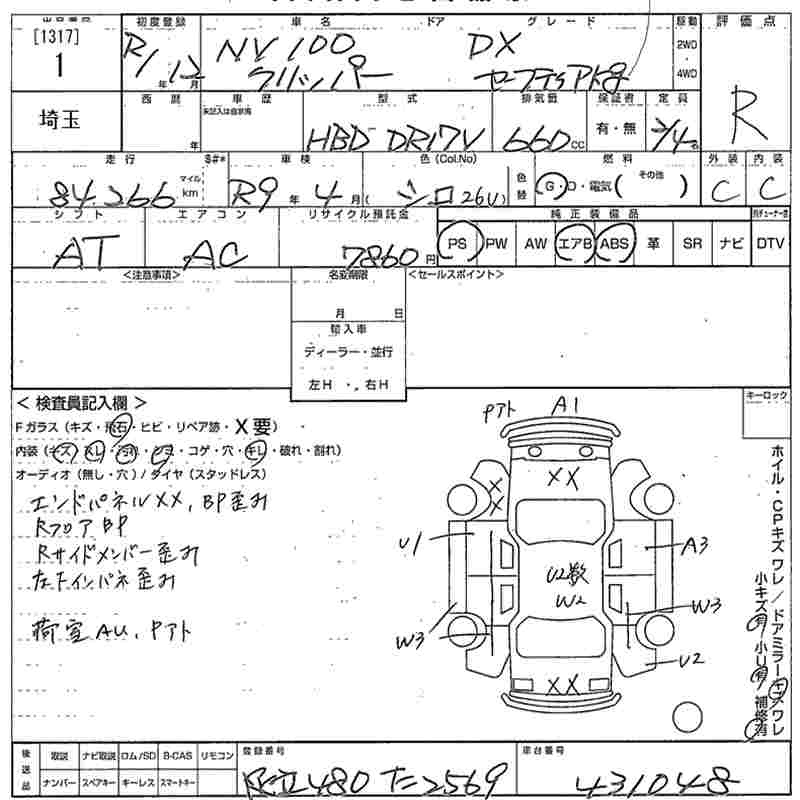 [1317]
1
初度登録
車名
ドア
グレード
駆動
評価点
R1/12
年 月
NV100
クリッパー
DX
セーフティアトgʼ
2WD
・
4WD
R
埼玉
西暦
年
車歴
未記入は自家用
型式
HBD DR17V
排気量
660cc
保証書
有・無
定員
2/4名
走行
84,266
マイル
km
S#*
車検
R9年 4月
色(Col.No)
シロ 26U
色替
燃料
G・D・電気( その他 )
外装
C
内装
C
シフト
AT
エアコン
AC
リサイクル預託金
7860円
純正装備品
PS PW AW エアB ABS 革 SR ナビ
DTV
<注意事項>
名変期限
月 日
輸入車
ディーラー・並行
左H ・ 右H
<セールスポイント>
<検査員記入欄>
Fガラス(キズ・飛石・ヒビ・リペア跡・X要)
内装(キズ・スレ・汚れ・シミ・コゲ・穴・キレ・破れ・割れ)
オーディオ(無し・穴)/タイヤ(スタッドレス)
エンドパネルXX, BP歪み
RフロアBP
Rサイドメンバー歪み
左下インパネ歪み
荷室AU, Pアト
キーロック
Pアト A1
XX
X
X
U1
A3
U2数
W2
W3
W3
U2
XX
ホイル・CPキズワレ/ドアミラーキズワレ
小キズ有 小U有 補修有
後送品
取説 ナビ取説 ロム/SD B-CAS リモコン
ナンバー スペアキー キーレス スマートキー
登録番号
足立480 た2569
車台番号
431048